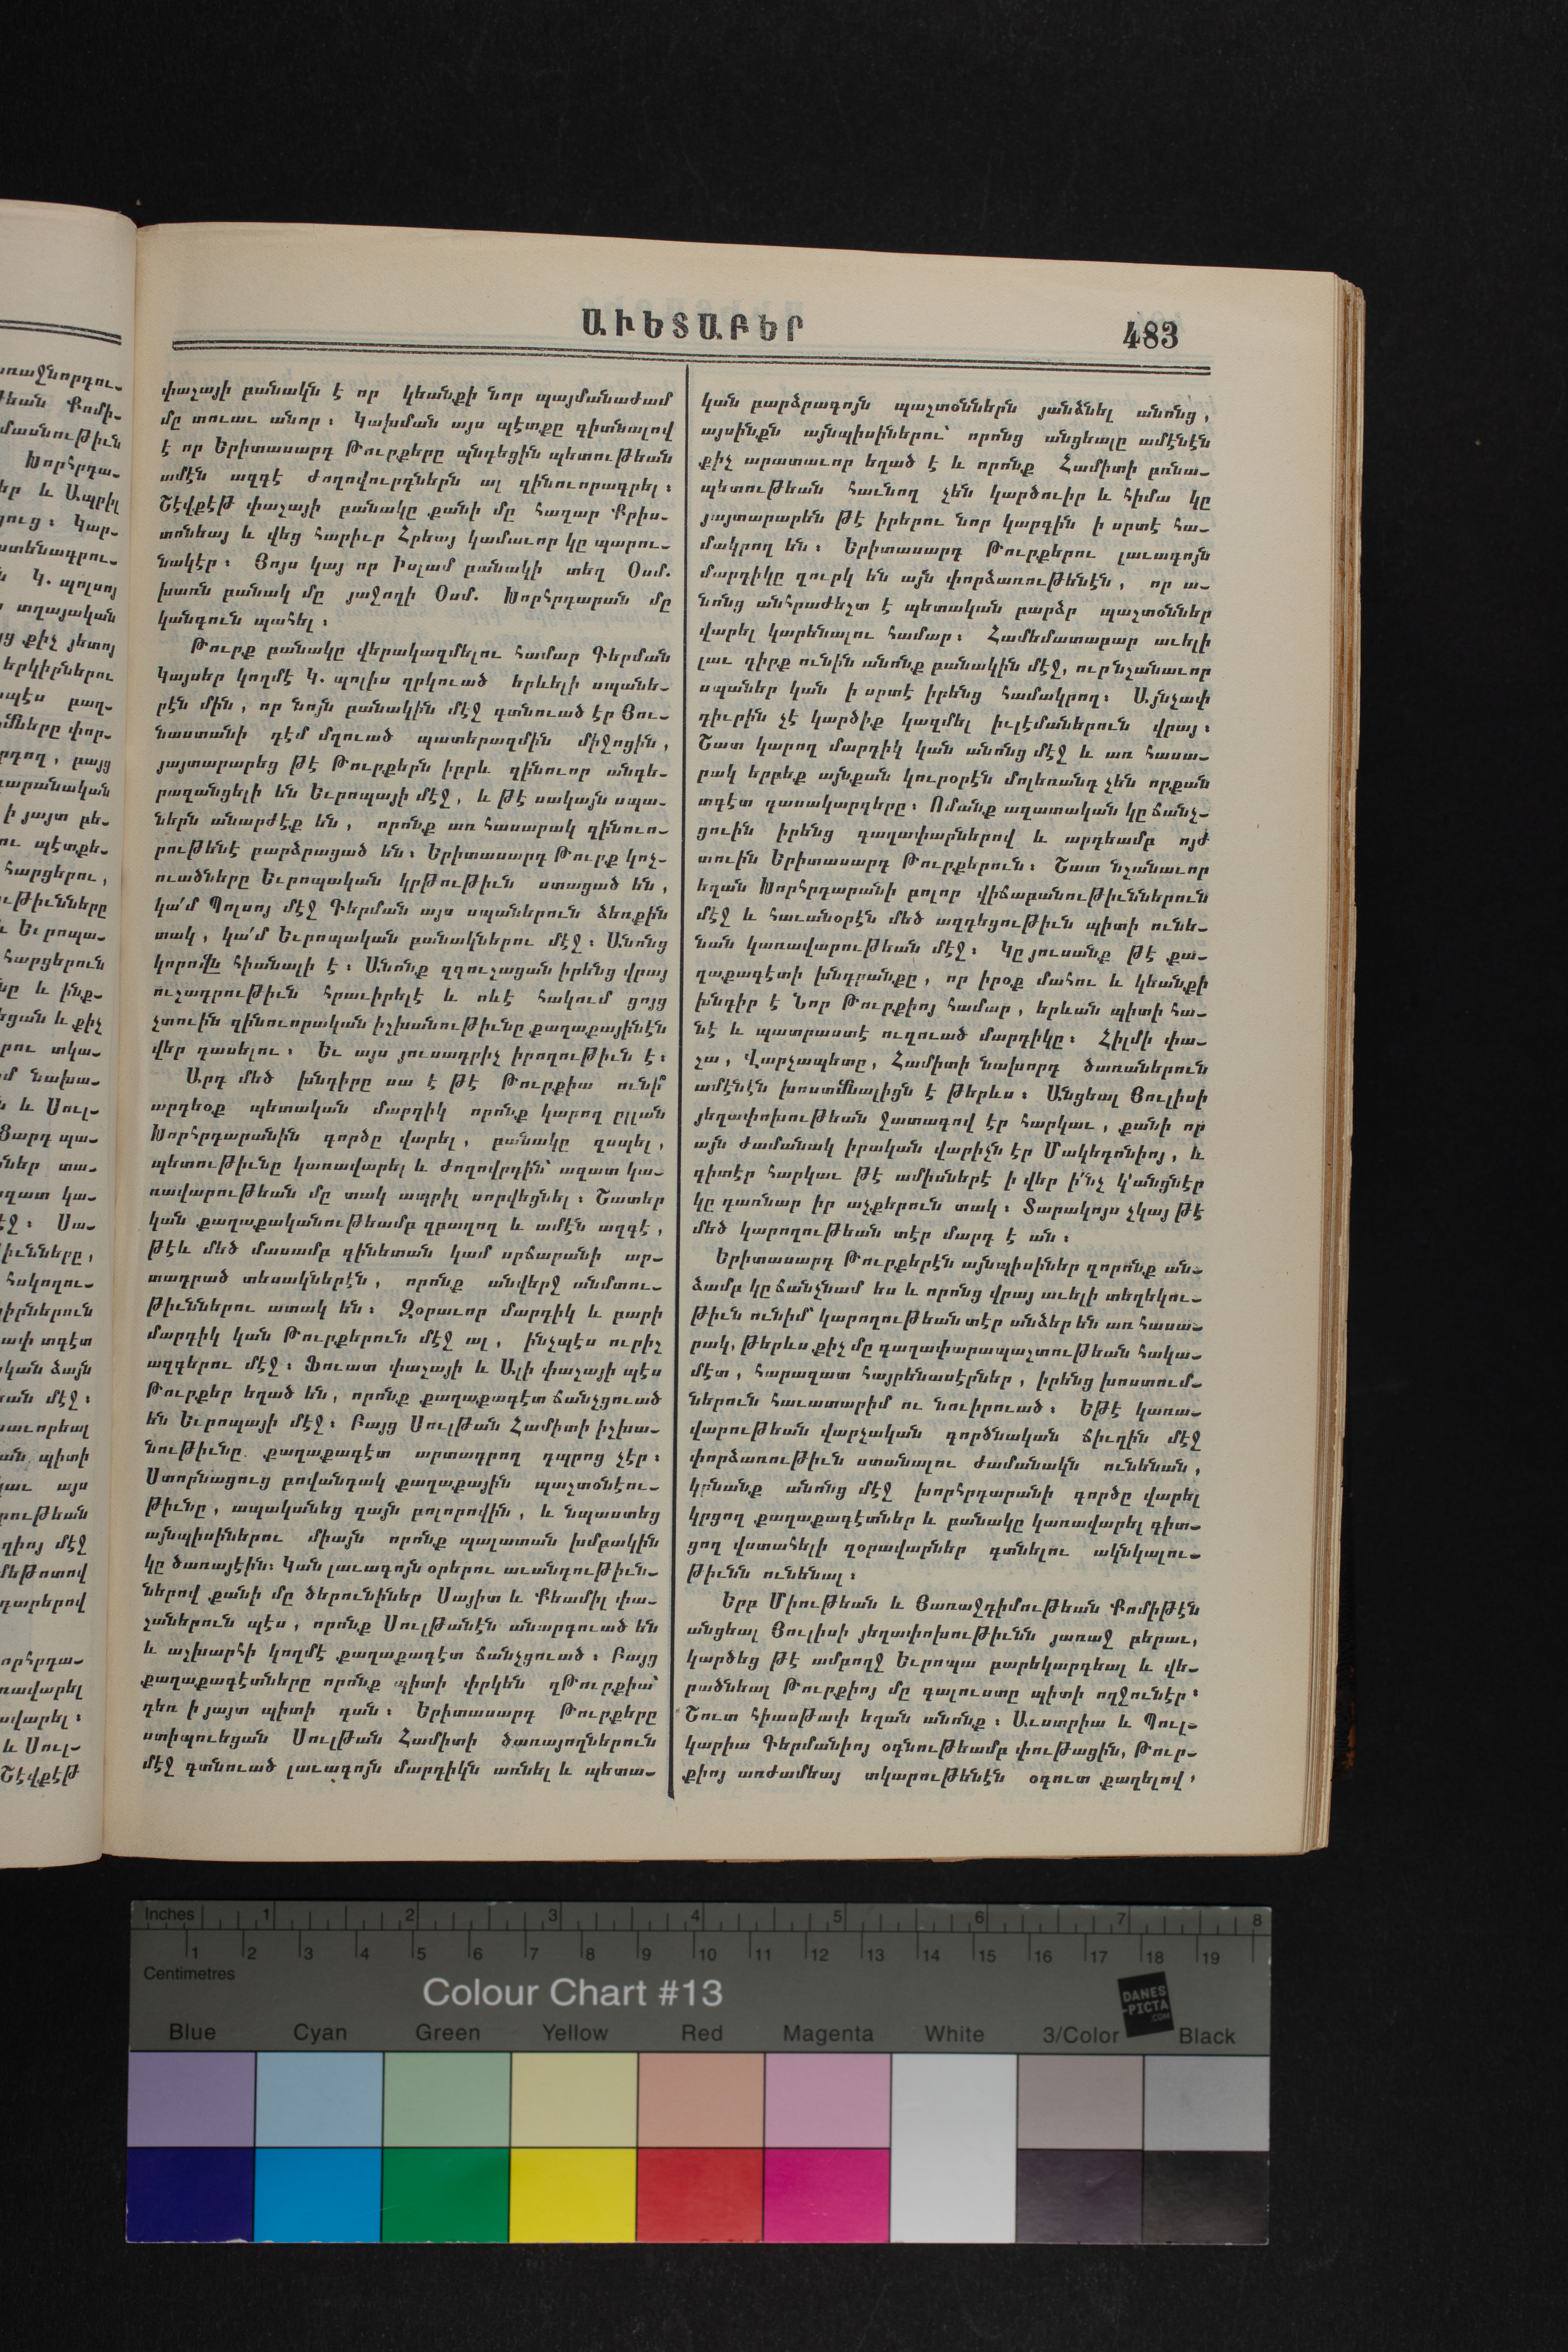 ԱՒԵՏԱԲԵՐ
483
փաշայի բանակն է որ կեանքի նոր պայմանաժամ
մը տուաւ անոր։ Կախման այս պէտքը գիտնալով
է որ Երիտասարդ Թուրքերը պնդեցին պետութեան
ամէն ազգէ ժողովուրդներն ալ զինուորագրել։
Շէվքէթ փաշայի բանակը քանի մը հազար Քրիս-
տոնեայ և վեց հարիւր Հրեայ կամաւոր կը պարու-
նակէր։ Յոյս կայ որ Իսլամ բանակի տեղ Օսմ.
խառն բանակ մը յաջողի Օսմ. Խորհրդարան մը
կանգուն պահել։
Թուրք բանակը վերակազմելու համար Գերման
Կայսեր կողմէ Կ. պոլիս ղրկուած երևելի սպանե-
րէն մին, որ նոյն բանակին մէջ գտնուած էր Յու-
նաստանի դէմ մղուած պատերազմին միջոցին,
յայտարարեց թէ Թուրքերն իբրև զինուոր անգե-
րազանցելի են Եւրոպայի մէջ, և թէ սակայն սպա-
ներն անարժէք են, որոնք առ հասարակ զինուո-
րութենէ բարձրացած են։ Երիտասարդ Թուրք կոչ-
ուածները Եւրոպական կրթութիւն ստացած են,
կա՛մ Պոլսոյ մէջ Գերման այս սպաներուն ձեռքին
տակ, կա՛մ Եւրոպական բանակներու մէջ։ Անոնց
կորովն հիանալի է։ Անոնք զգուշացան իրենց վրայ
ուշադրութիւն հրաւիրելէ և ոևէ հակում ցոյց
չտուին զինուորական իշխանութիւնը քաղաքայինէն
վեր դասելու։ Եւ այս յուսադրիչ իրողութիւն է։
Արդ մեծ խնդիրը սա է թէ Թուրքիա ունի՞
արդեօք պետական մարդիկ որոնք կարող ըլլան
Խորհրդարանին գործը վարել, բանակը զսպել,
պետութիւնը կառավարել և ժողովրդին՝ ազատ կա-
ռավարութեան մը տակ ապրիլ սորվեցնել։ Շատեր
կան քաղաքականութեամբ զբաղող և ամէն ազգէ,
թէև մեծ մասամբ գինետան կամ սրճարանի ար-
տադրած տեսակներէն, որոնք անվերջ անմտու-
թիւններու ատակ են։ Զօրաւոր մարդիկ և բարի
մարդիկ կան Թուրքերուն մէջ ալ, ինչպէս ուրիշ
ազգերու մէջ։ Ֆուատ փաշայի և Ալի փաշայի պէս
Թուրքեր եղած են, որոնք քաղաքագէտ ճանչցուած
են Եւրոպայի մէջ։ Բայց Սուլթան Համիտի իշխա-
նութիւնը քաղաքագէտ արտադրող դպրոց չէր։
Ստորնացուց բովանդակ քաղաքային պաշտօնէու-
թիւնը, ապականեց զայն բոլորովին, և նպաստեց
այնպիսիներու միայն որոնք պալատան խմբակին
կը ծառայէին։ Կան լաւագոյն օրերու աւանդութիւն-
ներով քանի մը ծերունիներ Սայիտ և Քեամիլ փա-
շաներուն պէս, որոնք Սուլթանէն անարգուած են
և աշխարհի կողմէ քաղաքագէտ ճանչցուած։ Բայց
քաղաքագէտները որոնք պիտի փրկեն զԹուրքիա՝
դեռ ի յայտ պիտի գան։ Երիտասարդ Թուրքերը
ստիպուեցան Սուլթան Համիտի ծառայողներուն
մէջ գտնուած լաւագոյն մարդիկն առնել և պետա-
կան բարձրագոյն պաշտօններն յանձնել անոնց,
այսինքն այնպիսիներու՝ որոնց անցեալը ամէնէն
քիչ արատաւոր եղած է և որոնք Համիտի բռնա-
պետութեան հաւնող չեն կարծուիր և հիմա կը
յայտարարեն թէ իրերու նոր կարգին ի սրտէ հա-
մակրող են։ Երիտասարդ Թուրքերու լաւագոյն
մարդիկը զուրկ են այն փորձառութենէն, որ ա-
նոնց անհրաժեշտ է պետական բարձր պաշտօններ
վարել կարենալու համար։ Համեմատաբար աւելի
լաւ դիրք ունին անոնք բանակին մէջ, ուր նշանաւոր
սպաներ կան ի սրտէ իրենց համակրող։ Այնչափ
դիւրին չէ կարծիք կազմել իւլէմաներուն վրայ։
Շատ կարող մարդիկ կան անոնց մէջ և առ հասա-
րակ երբեք այնքան կուրօրէն մոլեռանդ չեն որքան
տգէտ դասակարգերը։ Ոմանք ազատական կը ճանչ-
ցուին իրենց գաղափարներով և արդեամբ ոյժ
տուին Երիտասարդ Թուրքերուն։ Շատ նշանաւոր
եղան Խորհրդարանի բոլոր վիճաբանութիւններուն
մէջ և հաւանօրէն մեծ ազդեցութիւն պիտի ունե-
նան կառավարութեան մէջ։ Կը յուսանք թէ քա-
ղաքագէտի խնդրանքը, որ իրօք մահու և կեանքի
խնդիր է Նոր Թուրքիոյ համար, երևան պիտի հա-
նէ և պատրաստէ ուզուած մարդիկը։ Հիլմի փա-
շա, Վարչապետը, Համիտի նախորդ ծառաներուն
ամէնէն խոստմնալիցն է թերևս։ Անցեալ Յուլիսի
յեղափոխութեան ջատագով էր հարկաւ, քանի որ
այն ժամանակ իրական վարիչն էր Մակեդոնիոյ, և
գիտէր հարկաւ թէ ամիսներէ ի վեր ի՛նչ կ'անցնէր
կը դառնար իր աչքերուն տակ։ Տարակոյս չկայ թէ
մեծ կարողութեան տէր մարդ է ան։
Երիտասարդ Թուրքերէն այնպիսիներ զորոնք ան-
ձամբ կը ճանչնամ ես և որոնց վրայ աւելի տեղեկու-
թիւն ունիմ՝ կարողութեան տէր անձեր են առ հասա-
րակ, թերևս քիչ մը գաղափարապաշտութեան հակա-
մէտ, հարազատ հայրենասէրներ, իրենց խոստում-
ներուն հաւատարիմ ու նուիրուած։ Եթէ կառա-
վարութեան վարչական գործնական ճիւղին մէջ
փորձառութիւն ստանալու ժամանակն ունենան,
կրնանք անոնց մէջ խորհրդարանի գործը վարել
կրցող քաղաքագէտներ և բանակը կառավարել գիտ-
ցող վստահելի զօրավարներ գտնելու ակնկալու-
թիւնն ունենալ։
Երբ Միութեան և Յառաջդիմութեան Քոմիթէն
անցեալ Յուլիսի յեղափոխութիւնն յառաջ բերաւ,
կարծեց թէ ամբողջ Եւրոպա բարեկարգեալ և վե-
րածնեալ Թուրքիոյ մը գալուստը պիտի ողջունէր։
Շուտ հիասթափ եղան անոնք։ Աւստրիա և Պուլ-
կարիա Գերմանիոյ օգնութեամբ փութացին, Թուր-
քիոյ առժամեայ տկարութենէն օգուտ քաղելով,
Inches 1 2 3 4 5 6 7 8
1 2 3 4 5 6 7 8 9 10 11 12 13 14 15 16 17 18 19
Centimetres
Colour Chart #13
DANES
-PICTA
.COM
Blue Cyan Green Yellow Red Magenta White 3/Color Black